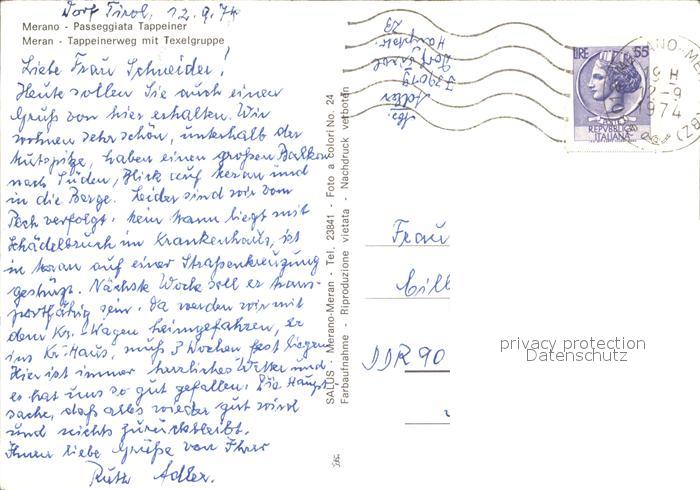 Dorf Tirol, 12.9.74
Merano - Passeggiata Tappeiner
Meran - Tappeinerweg mit Texelgruppe
Liebe Frau Schneider!
Heute sollen Sie auch einen
Gruß von hier erhalten. Wir
wohnen sehr schön, unterhalb der
Mutspitze, haben einen großen Balkon
nach Süden, Blick auf Meran und
in die Berge. Leider sind wir vom
Pech verfolgt. Mein Mann liegt mit
Schädelbruch im Krankenhaus, ist
in Meran auf einer Straßenkreuzung
gestürzt. Nächste Woche soll er trans-
portfähig sein. Da werden wir mit
dem Kr.-Wagen heimgefahren, er
ins Kr.-Haus, muß 3 Wochen fest liegen.
Hier ist immer herrliches Wetter und
es hat uns so gut gefallen. Die Haupt-
sache, daß alles wieder gut wird
und nichts zurückbleibt.
Ihnen liebe Grüße von Ihrer
Ruth Adler.
SALUS - Merano-Meran - Tel. 23841 - Foto a colori No. 24
Farbaufnahme - Riproduzione vietata - Nachdruck verboten
Abs.
Adler
I 39019
Dorf Tirol
Hauptstr.
23
LIRE 55
REPVBBLICA
ITALIANA
1974
Frau
DDR 90
privacy protection
Datenschutz